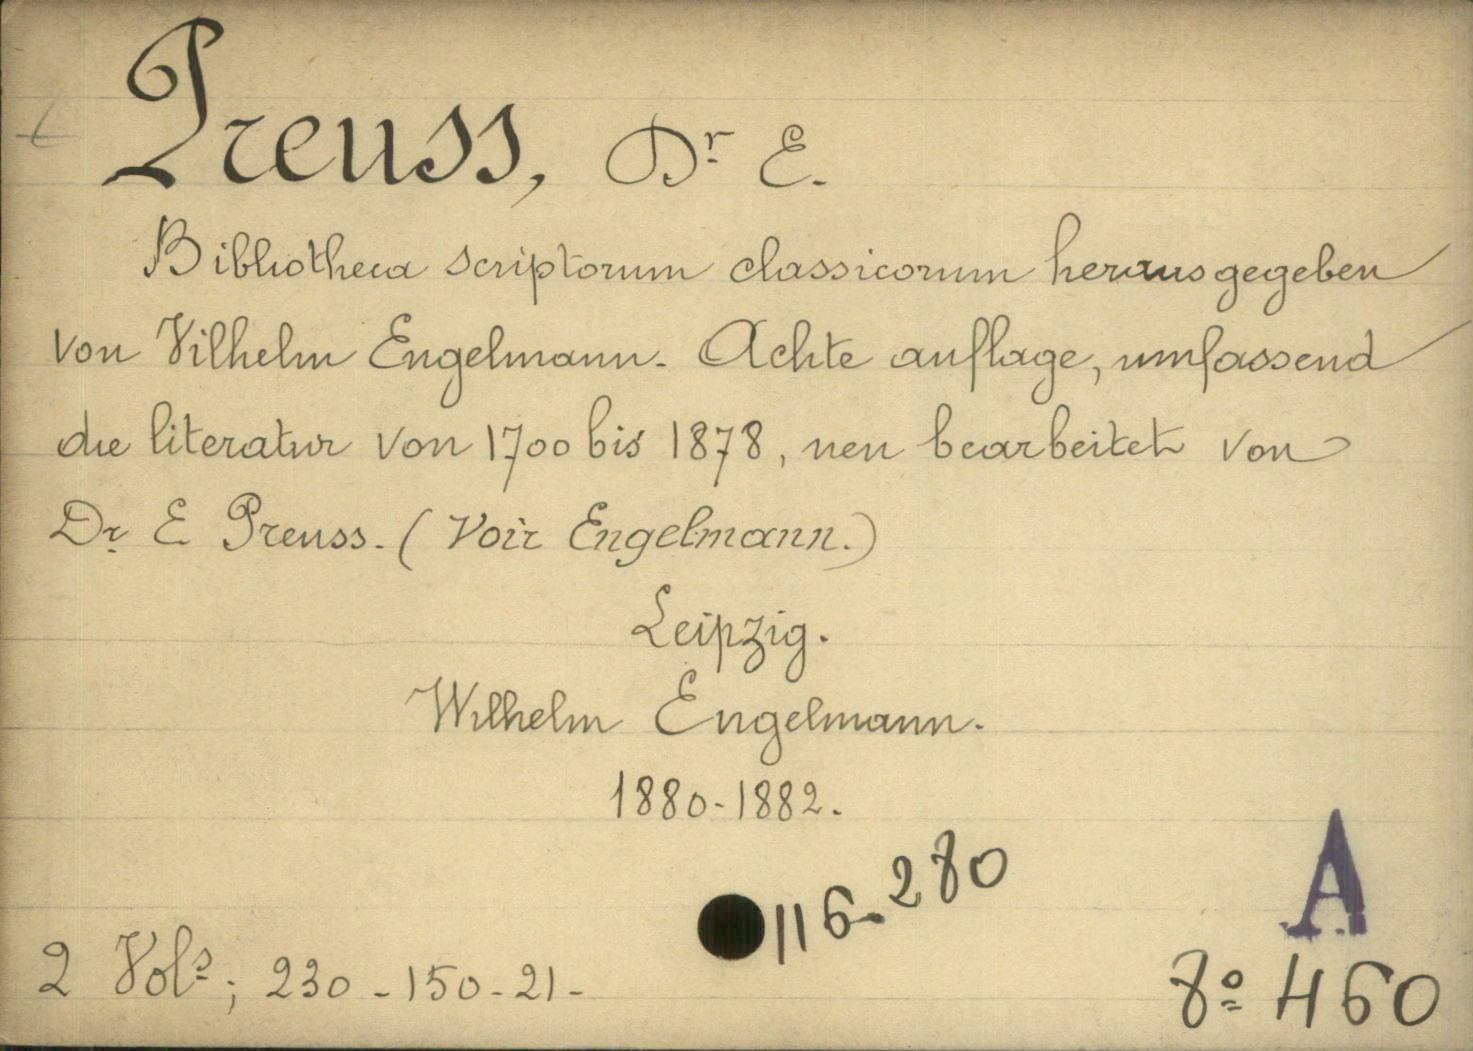 Preuss, Dr E.
Bibliotheca scriptorum classicorum herausgegeben
von Vilhelm Engelmann. Achte auflage, umfassend
die literatur von 1700 bis 1878, neu bearbeitet von
Dr E Preuss. (Voir Engelmann.)
Leipzig.
Wilhelm Engelmann.
1880-1882.
116-280
A
2 Vols; 230-150-21-
8º 460